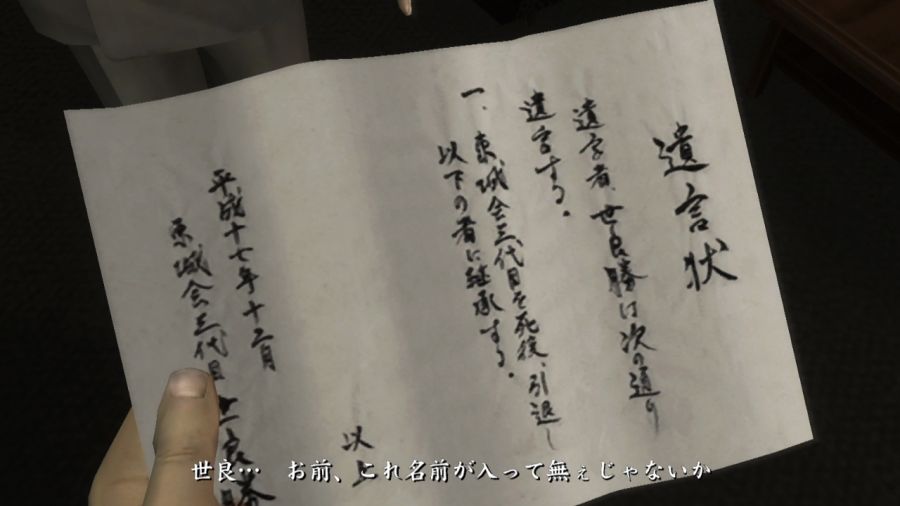 遺言状
遺言者、世良勝は次の通り
遺言する。
一、東城会三代目を死後、引退し
以下の者に継承する。
以上
平成十七年十二月
東城会三代目 世良勝
世良… お前、これ名前が入って無ぇじゃないか